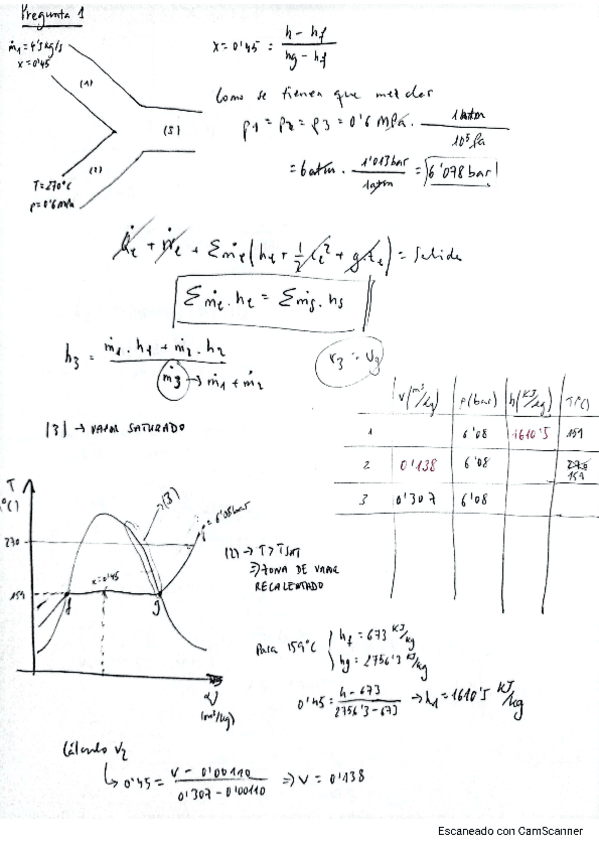 Pregunta 1
ṁ1 = 4'3 kg/s
x = 0'45
(1)
(3)
(2)
T = 270°C
p = 0'6 MPa
x = 0'45 = (h - hf) / (hg - hf)
Como se tienen que mezclar
p1 = p2 = p3 = 0'6 MPa · 1 batm / 10⁵ Pa
= 6 batm · 1'013 bar / 1 atm = 6'078 bar!
Q̇e + Ẇe + Σṁe (he + 1/2 Ce² + g·ze) = Salida
Σṁe · he = Σṁs · hs
h3 = (ṁ1 · h1 + ṁ2 · h2) / ṁ3 → ṁ1 + ṁ2
v3 = vg
(3) → VAPOR SATURADO
v(m³/kg) p(bar) h(KJ/kg) T(°C)
1 6'08 1610'5 159
2 0'138 6'08 270 159
3 0'307 6'08
T
(°C)
270
159
x = 0'45
f
g
(3)
p = 6'08 bar
v
(m³/kg)
(2) → T > Tsat
⇒ ZONA DE VAPOR
RECALENTADO
Para 159°C { hf = 673 KJ/kg
hg = 2756'3 KJ/kg
0'45 = (h - 673) / (2756'3 - 673) → h1 = 1610'5 KJ/kg
Cálculo v2
↳ 0'45 = (v - 0'00110) / (0'307 - 0'00110) ⇒ v = 0'138
Escaneado con CamScanner